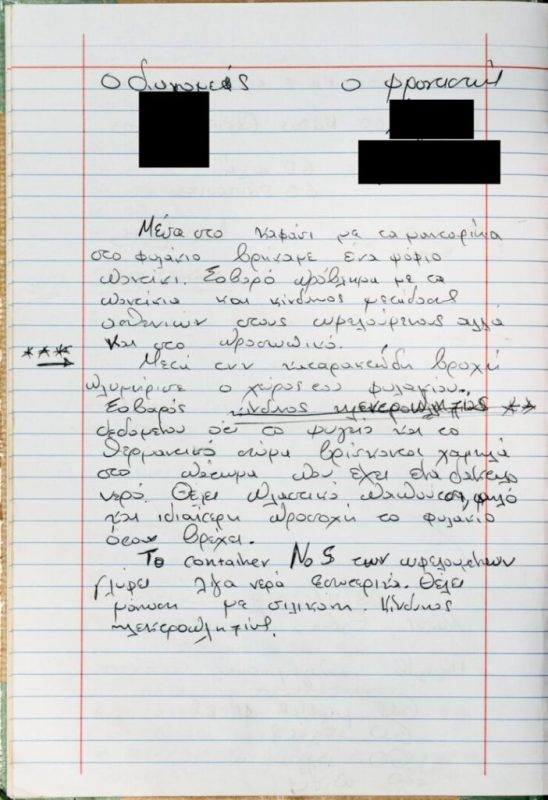 Ο δυνομεάς ο φροντιστής
Μέσα στο καφάσι με τα μανταρίνια
στο φυλάκιο βρήκαμε ένα ψόφιο
ποντίκι. Σοβαρό πρόβλημα με τα
ποντίκια και κίνδυνος μετάδοσης
ασθενειών στους ωφελούμενους αλλά
και στο προσωπικό.
*** Μετά την καταρακτώδη βροχή
πλυμμύρισε ο χώρος του φυλακίου.
Σοβαρός κίνδυνος ηλεκτροπληξίας **
δεδομένου ότι το ψυγείο και το
θερμαντικό σώμα βρίσκονται χαμηλά
στο πάτωμα που έχει ένα δάκτυλο
νερό. Θέλει πλαστικό
και ιδιαίτερη προσοχή το φυλάκιο
όταν βρέχει.
Το container No 5 των ωφελουμένων
γλύφει λίγα νερά εσωτερικά. Θέλει
μόνωση με σιλικόνη. Κίνδυνος
ηλεκτροπληξίας.